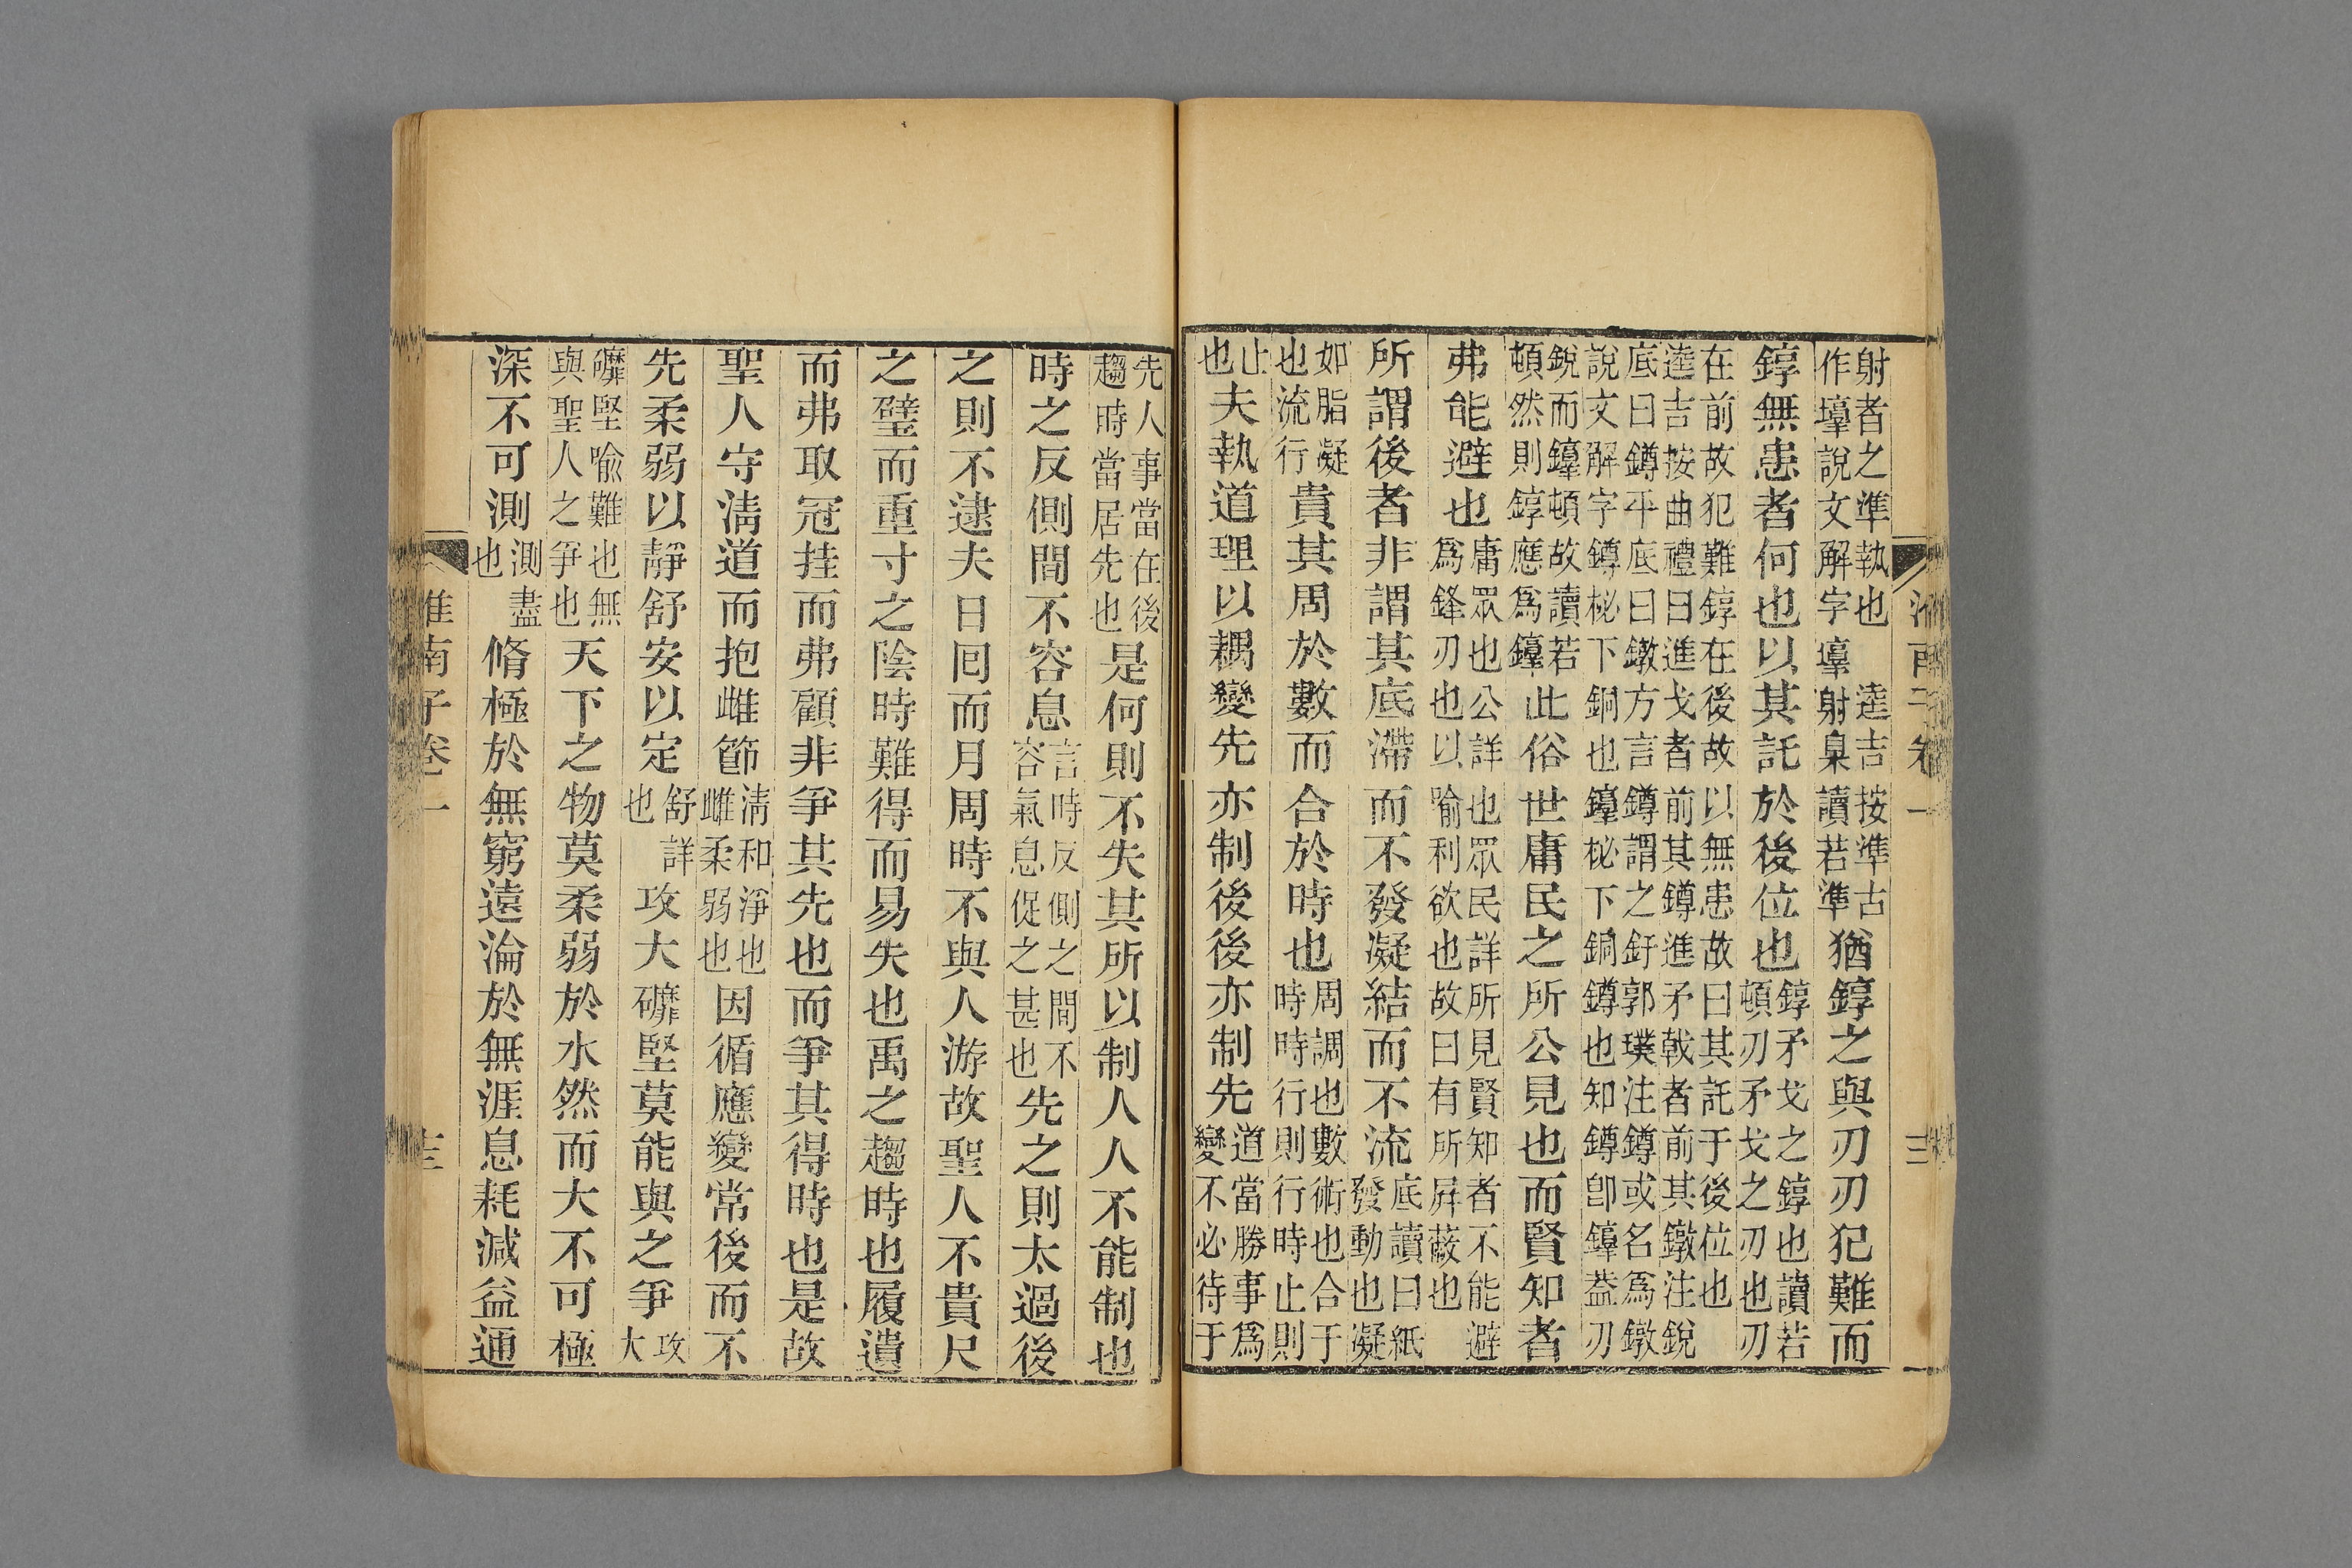 射者之準執也　逵吉按準古作埻說文解字埻射臬讀若準猶錞之與刃刃犯難而
錞無患者何也以其託於後位也錞矛戈之錞也讀若頓刃矛戈之刃也刃
在前故犯難錞在後故以無患故曰其託于後位也逵吉按曲禮曰進戈者前其鐏進矛戟者前其鐓注銳
底曰鐏平底曰鐓方言鐏謂之釬郭璞注鐏或名爲鐓說文解字鐏柲下銅也錞柲下銅鐏也知鐏卽錞葢刃
銳而錞頓故讀若頓然則錞應爲錞此俗世庸民之所公見也而賢知者
弗能避也庸眾也公詳也眾民詳所見賢知者不能避爲鋒刃也以喻利欲也故曰有所屛蔽也
所謂後者非謂其底滯而不發凝結而不流底讀曰紙發動也凝
如脂凝也流行貴其周於數而合於時也周調也數術也合于時時行則行時止則
止也夫執道理以耦變先亦制後後亦制先道當勝事爲變不必待于
淮南子卷一
三
先人事當在後趨時當居先也是何則不失其所以制人人不能制也
時之反側間不容息言時反側之間不容氣息促之甚也先之則太過後
之則不逮夫日囘而月周時不與人游故聖人不貴尺
之璧而重寸之陰時難得而易失也禹之趨時也履遺
而弗取冠挂而弗顧非爭其先也而爭其得時也是故
聖人守淸道而抱雌節淸和淨也雌柔弱也因循應變常後而不
先柔弱以靜舒安以定舒詳也攻大䃺堅莫能與之爭攻大
䃺堅喩難也無與聖人之爭也天下之物莫柔弱於水然而大不可極
深不可測測盡也脩極於無窮遠淪於無涯息耗減益通
淮南子卷一